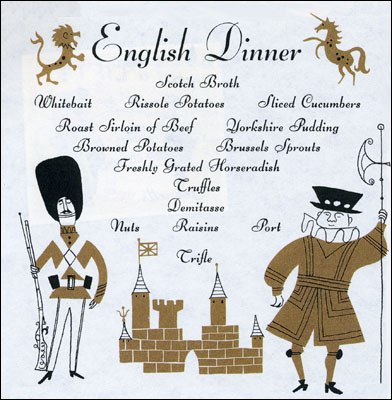 English Dinner
Scotch Broth
Whitebait Rissole Potatoes Sliced Cucumbers
Roast Sirloin of Beef Yorkshire Pudding
Browned Potatoes Brussels Sprouts
Freshly Grated Horseradish
Truffles
Demitasse
Nuts Raisins Port
Trifle